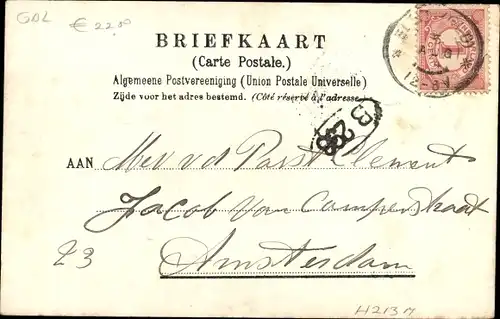 GDL € 22.50
BRIEFKAART
(Carte Postale.)
Algemeene Postvereeniging (Union Postale Universelle)
Zijde voor het adres bestemd. (Côté réservé à l'adresse.)
B
AAN Mev vd Passt Clement
Jacob van Campenstraat
23 Amsterdam
H213M